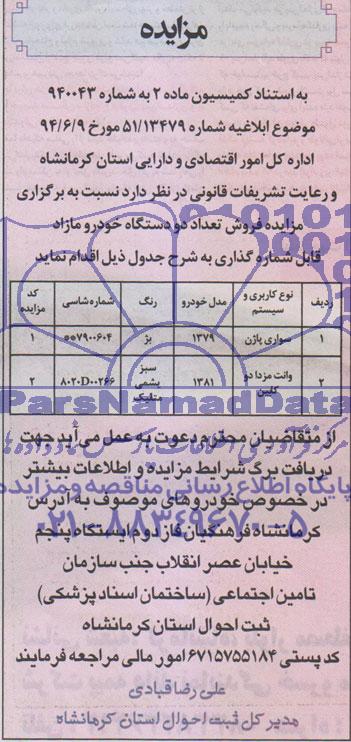 مزایده
به استناد کمیسیون ماده ۲ به شماره ۹۴۰۰۴۳
موضوع ابلاغیه شماره ۵۱/۱۳۴۷۹ مورخ ۹۴/۶/۹
اداره کل امور اقتصادی و دارایی استان کرمانشاه
و رعایت تشریفات قانونی در نظر دارد نسبت به برگزاری
مزایده فروش تعداد دو دستگاه خودرو مازاد
قابل شماره گذاری به شرح جدول ذیل اقدام نماید
ردیف نوع کاربری و سیستم مدل خودرو رنگ شماره شاسی کد مزایده
۱ سواری پاژن ۱۳۷۹ بژ ۰۰۷۹۰۰۶۰۴ ۱
۲ وانت مزدا دو کابین ۱۳۸۱ سبز یشمی متالیک ۸۰۲۰D۰۰۲۶۶ ۲
ParsNamadData
از متقاضیان محترم دعوت به عمل می‌آید جهت
دریافت برگ شرایط مزایده و اطلاعات بیشتر
پایگاه اطلاع رسانی مناقصه و مزایده
در خصوص خودروهای موصوف به آدرس
۰۲۱-۸۸۳۴۹۶۷۰-۵
کرمانشاه فرهنگیان فاز دوم ایستگاه پنجم
خیابان عصر انقلاب جنب سازمان
تامین اجتماعی (ساختمان اسناد پزشکی)
ثبت احوال استان کرمانشاه
کدپستی ۶۷۱۵۷۵۵۱۸۴ امور مالی مراجعه فرمایند
علی رضا قبادی
مدیر کل ثبت احوال استان کرمانشاه